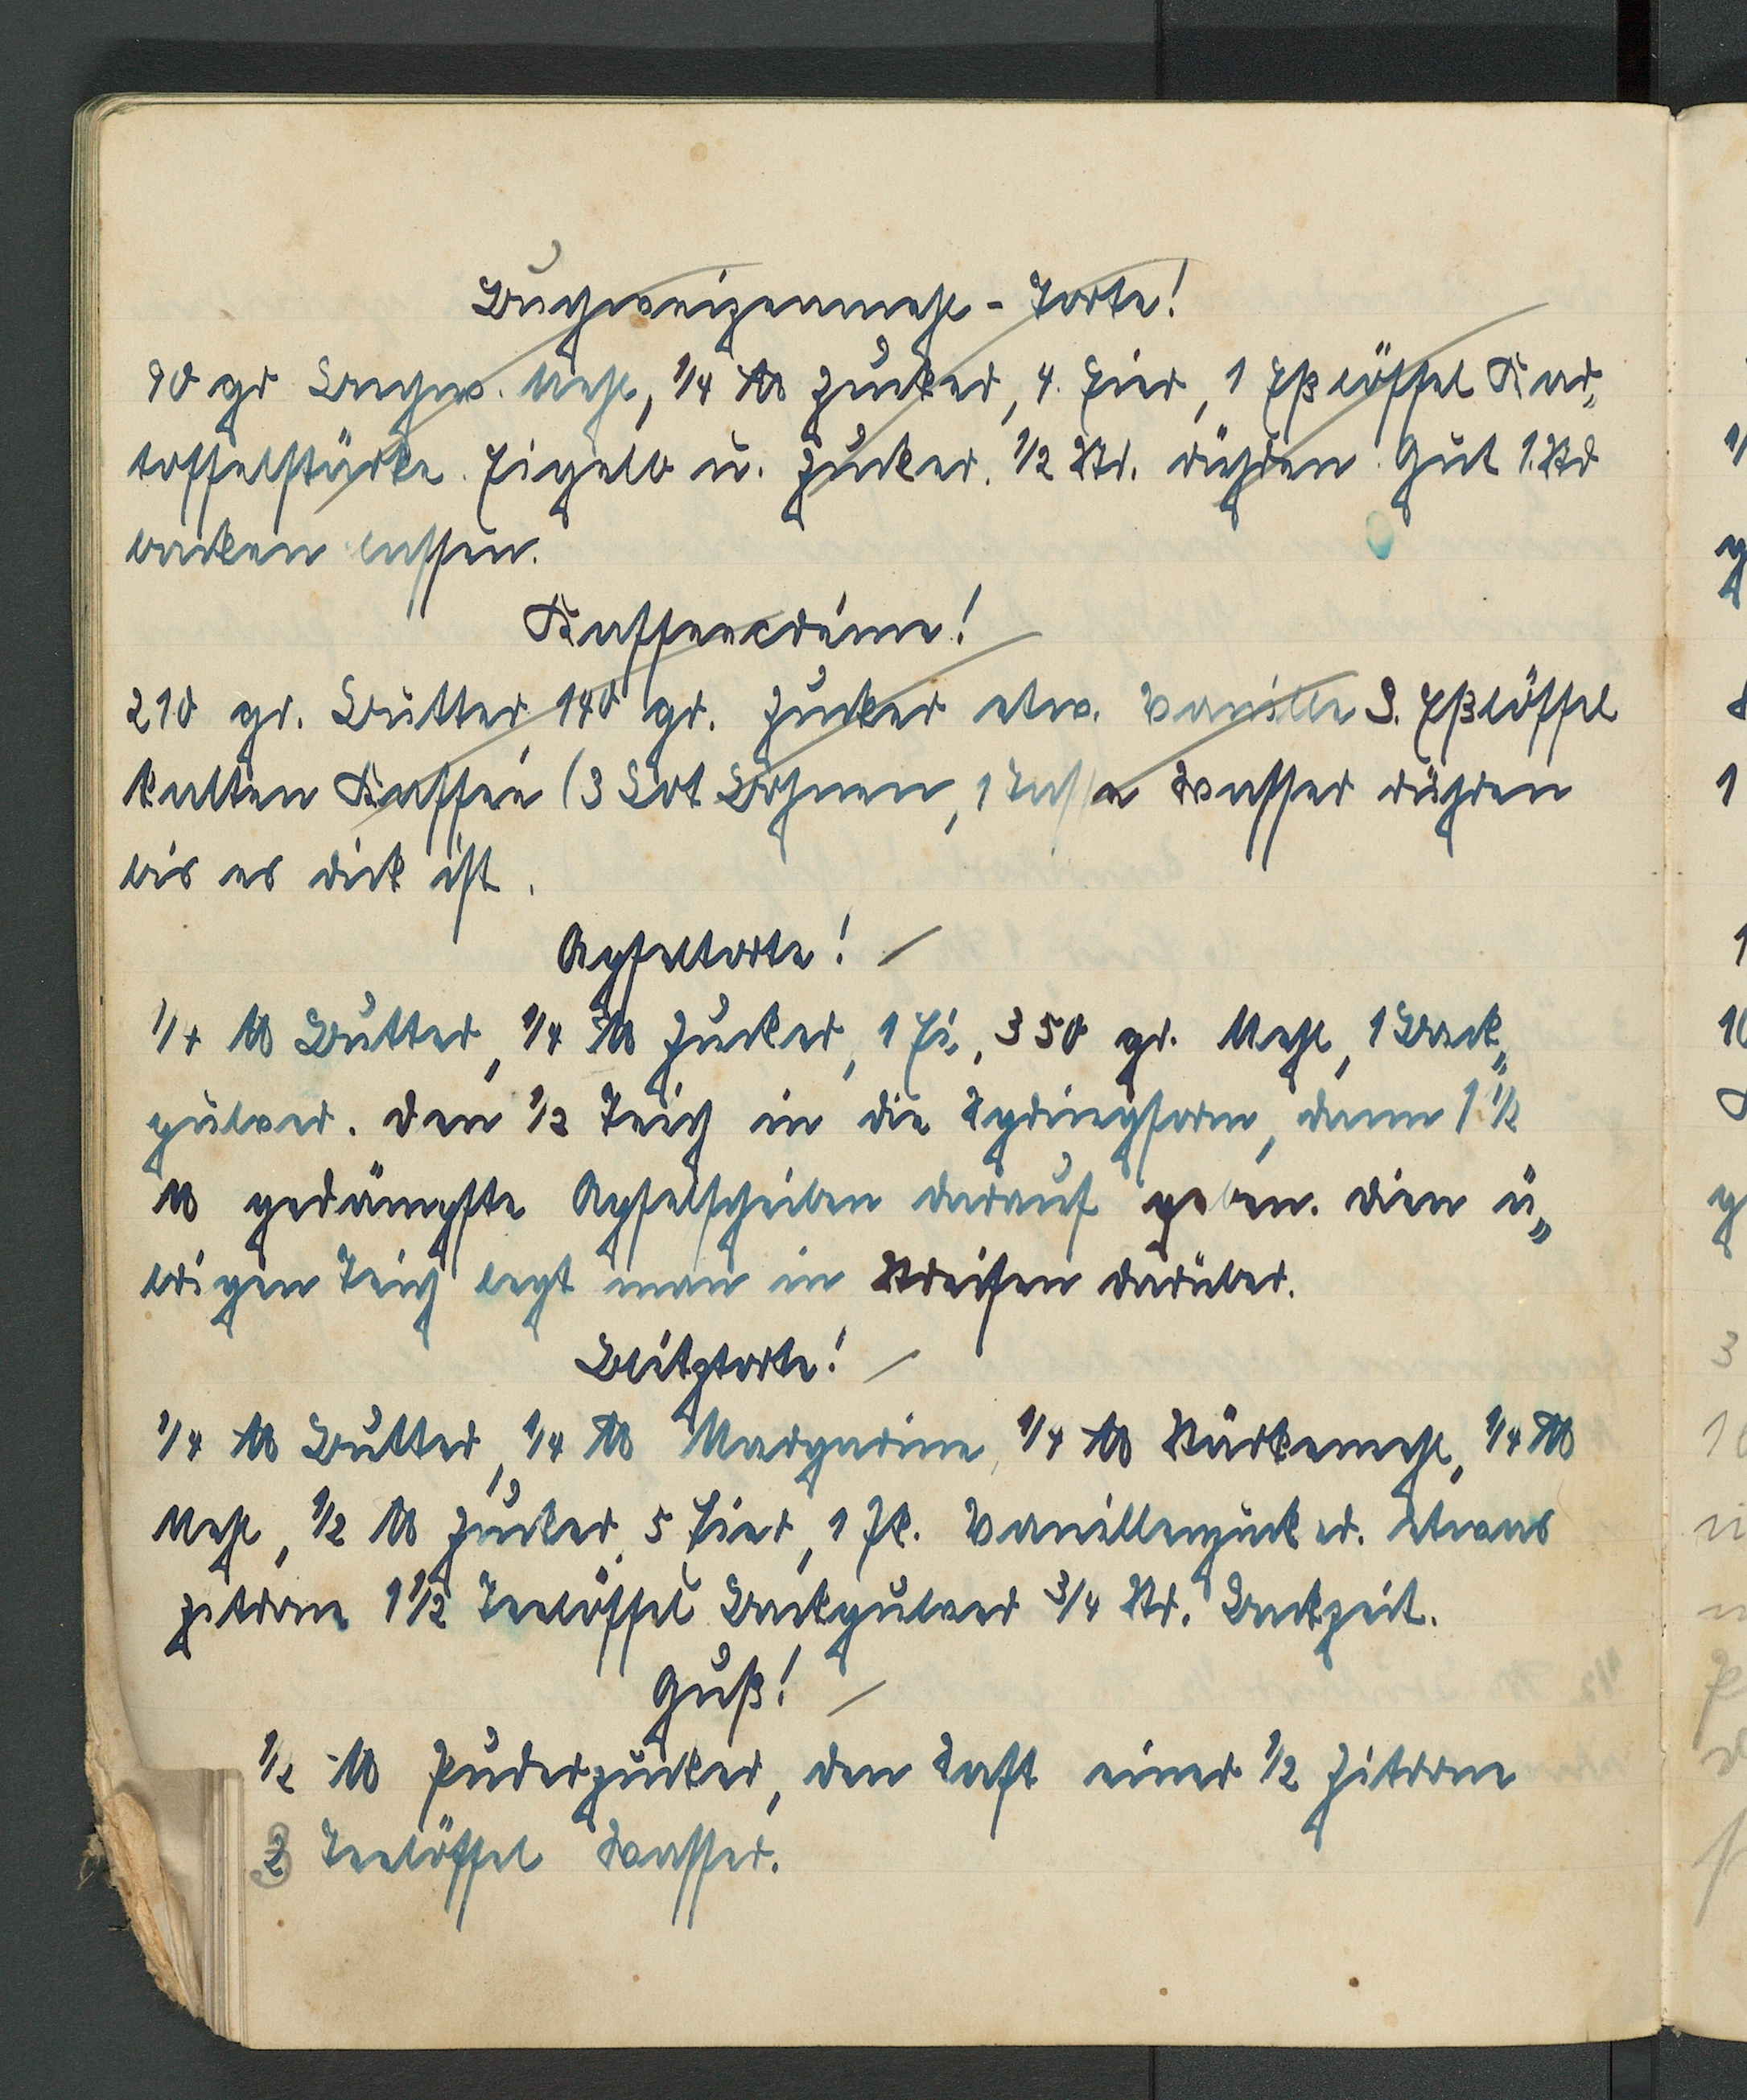 Buchweizenmehl-Torte!
90 gr Buchw. Mehl, 1/4 ℔ Zucker, 4. Eier, 1 Eßlöffel Kar„
toffelstärke. Eigelb u. Zucker. 1/2 Std. rühren. Gut 1. Std
backen lassen.
Kaffeecréme!
210 gr. Butter, 140 gr. Zucker etw. Vanille 3. Eßlöffel
kalten Kaffee (3 Lot Bohnen, 1 Tasse Wasser rühren
bis es dick ist.
Apfeltorte!
1/4 ℔ Butter, 1/4 ℔ Zucker, 1 Ei, 350 gr. Mehl, 1 Back„
pulver. Den 1/2 Teich in die Springform, dann 1 1/2
℔ gedämpfte Apfelscheiben darauf geben. Dien ü„
brigen Teich legt man in Streifen darüber.
Blitztorte!
1/4 ℔ Butter, 1/4 ℔ Margarine, 1/4 ℔ Stärkemehl, 1/4 ℔
Mehl, 1/2 ℔ Zucker, 5 Eier, 1 Pk. Vanillenzucker. Etwas
Zitrone 1 1/2 Teelöffel Backpulver 3/4 Std. Backzeit.
Guß!
1/2 ℔ Puderzucker, den Saft einer 1/2 Zitrone
2 Teelöffel Wasser.